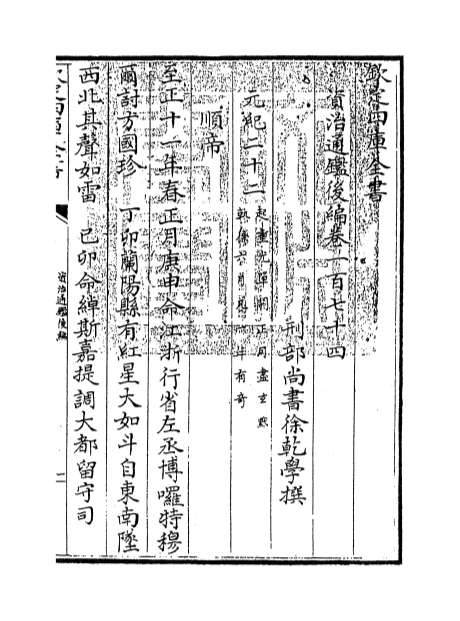 欽定四庫全書
資治通鑑後編卷一百七十四
刑部尚書徐乾學撰
元紀二十二起重光單閼正月盡玄黓
執徐六月凡一年有奇
順帝
至正十一年春正月庚申命江浙行省左丞博囉特穆
爾討方國珍 丁卯蘭陽縣有紅星大如斗自東南墜
西北其聲如雷 己卯命綽斯嘉提調大都留守司
資治通鑑後編